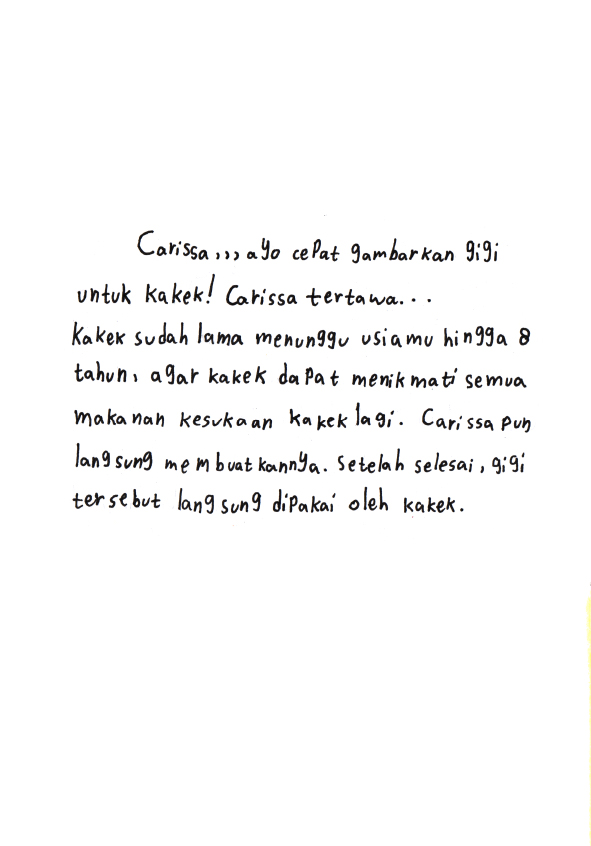 Carissa,,, ayo cepat gambarkan gigi
untuk kakek! Carissa tertawa...
Kakek sudah lama menunggu usiamu hingga 8
tahun, agar kakek dapat menikmati semua
makanan kesukaan kakek lagi. Carissa pun
langsung membuatkannya. Setelah selesai, gigi
tersebut langsung dipakai oleh kakek.